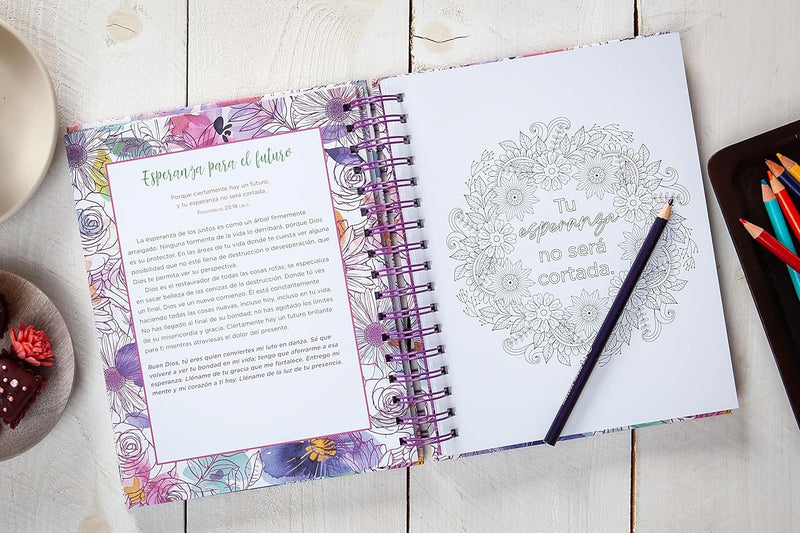 Esperanza para el futuro
Porque ciertamente hay un futuro,
y tu esperanza no será cortada.
Proverbios 23:18 LBLA
La esperanza de los justos es como un árbol firmemente
arraigado. Ninguna tormenta de la vida lo derribará, porque Dios
es su protector. En las áreas de tu vida donde te cuesta ver alguna
posibilidad que no esté llena de destrucción o desesperación, que
Dios te permita ver su perspectiva.
Dios es el restaurador de todas las cosas rotas; se especializa
en sacar belleza de las cenizas de la destrucción. Donde tú ves
un final, Dios ve un nuevo comienzo. Él está constantemente
haciendo todas las cosas nuevas, incluso hoy, incluso en tu vida.
No has llegado al final de su bondad; no has agotado los límites
de su misericordia y gracia. Ciertamente hay un futuro brillante
para ti mientras atraviesas el dolor del presente.
Buen Dios, tú eres quien convierte mi luto en danza. Sé que
volveré a ver tu bondad en mi vida; tengo que aferrarme a esa
esperanza. Lléname de tu gracia que me fortalece. Entrego mi
mente y mi corazón a ti hoy. Lléname de la luz de tu presencia.
Tu
esperanza
no será
cortada.